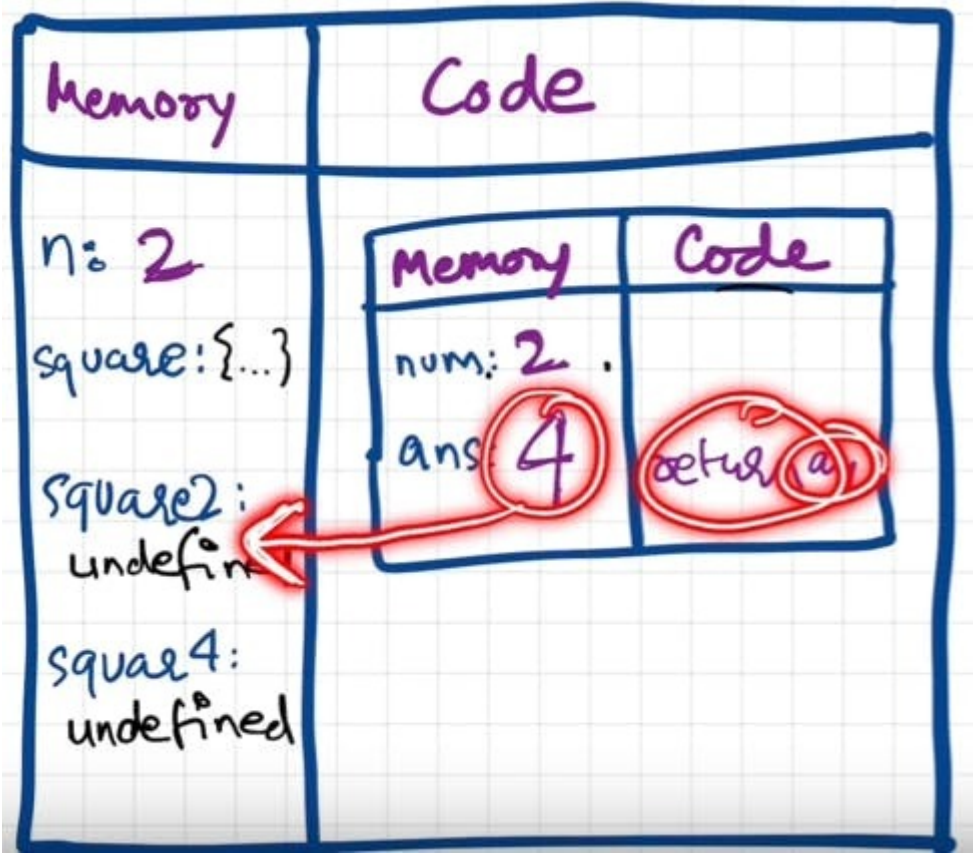 Memory
Code
n: 2
square: {...}
square2:
undefin
squar4:
undefined
Memory
Code
num: 2 .
ans: 4
return an